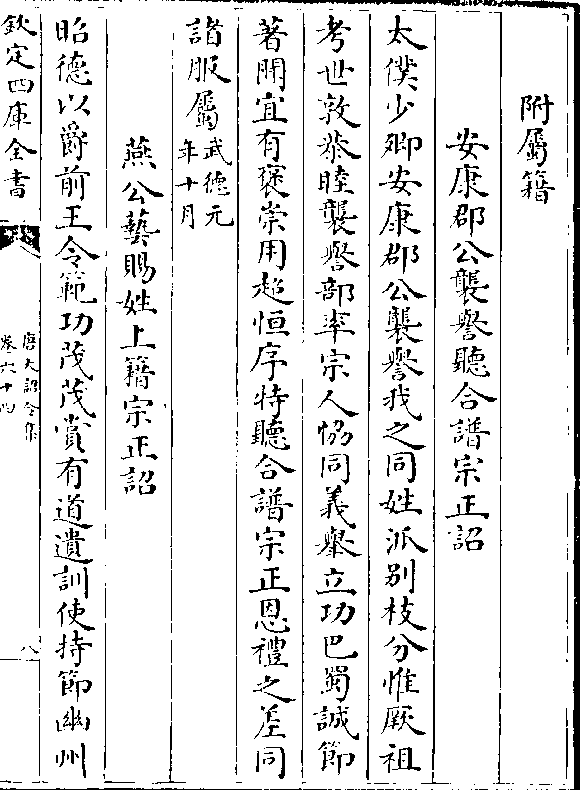 附屬籍
安康郡公襲譽聽合譜宗正詔
太僕少卿安康郡公襲譽我之同姓派别枝分惟厥祖
考世敦恭睦襲譽部率宗人恊同義舉立功巴蜀誠節
著聞宜有褒崇用超恒序特聽合譜宗正恩禮之差同
諸服屬武德元
年十月
燕公藝賜姓上籍宗正詔
昭德以爵前王令範功茂茂賞有道遺訓使持節幽州
欽定四庫全書
唐大詔令集
卷六十四
八